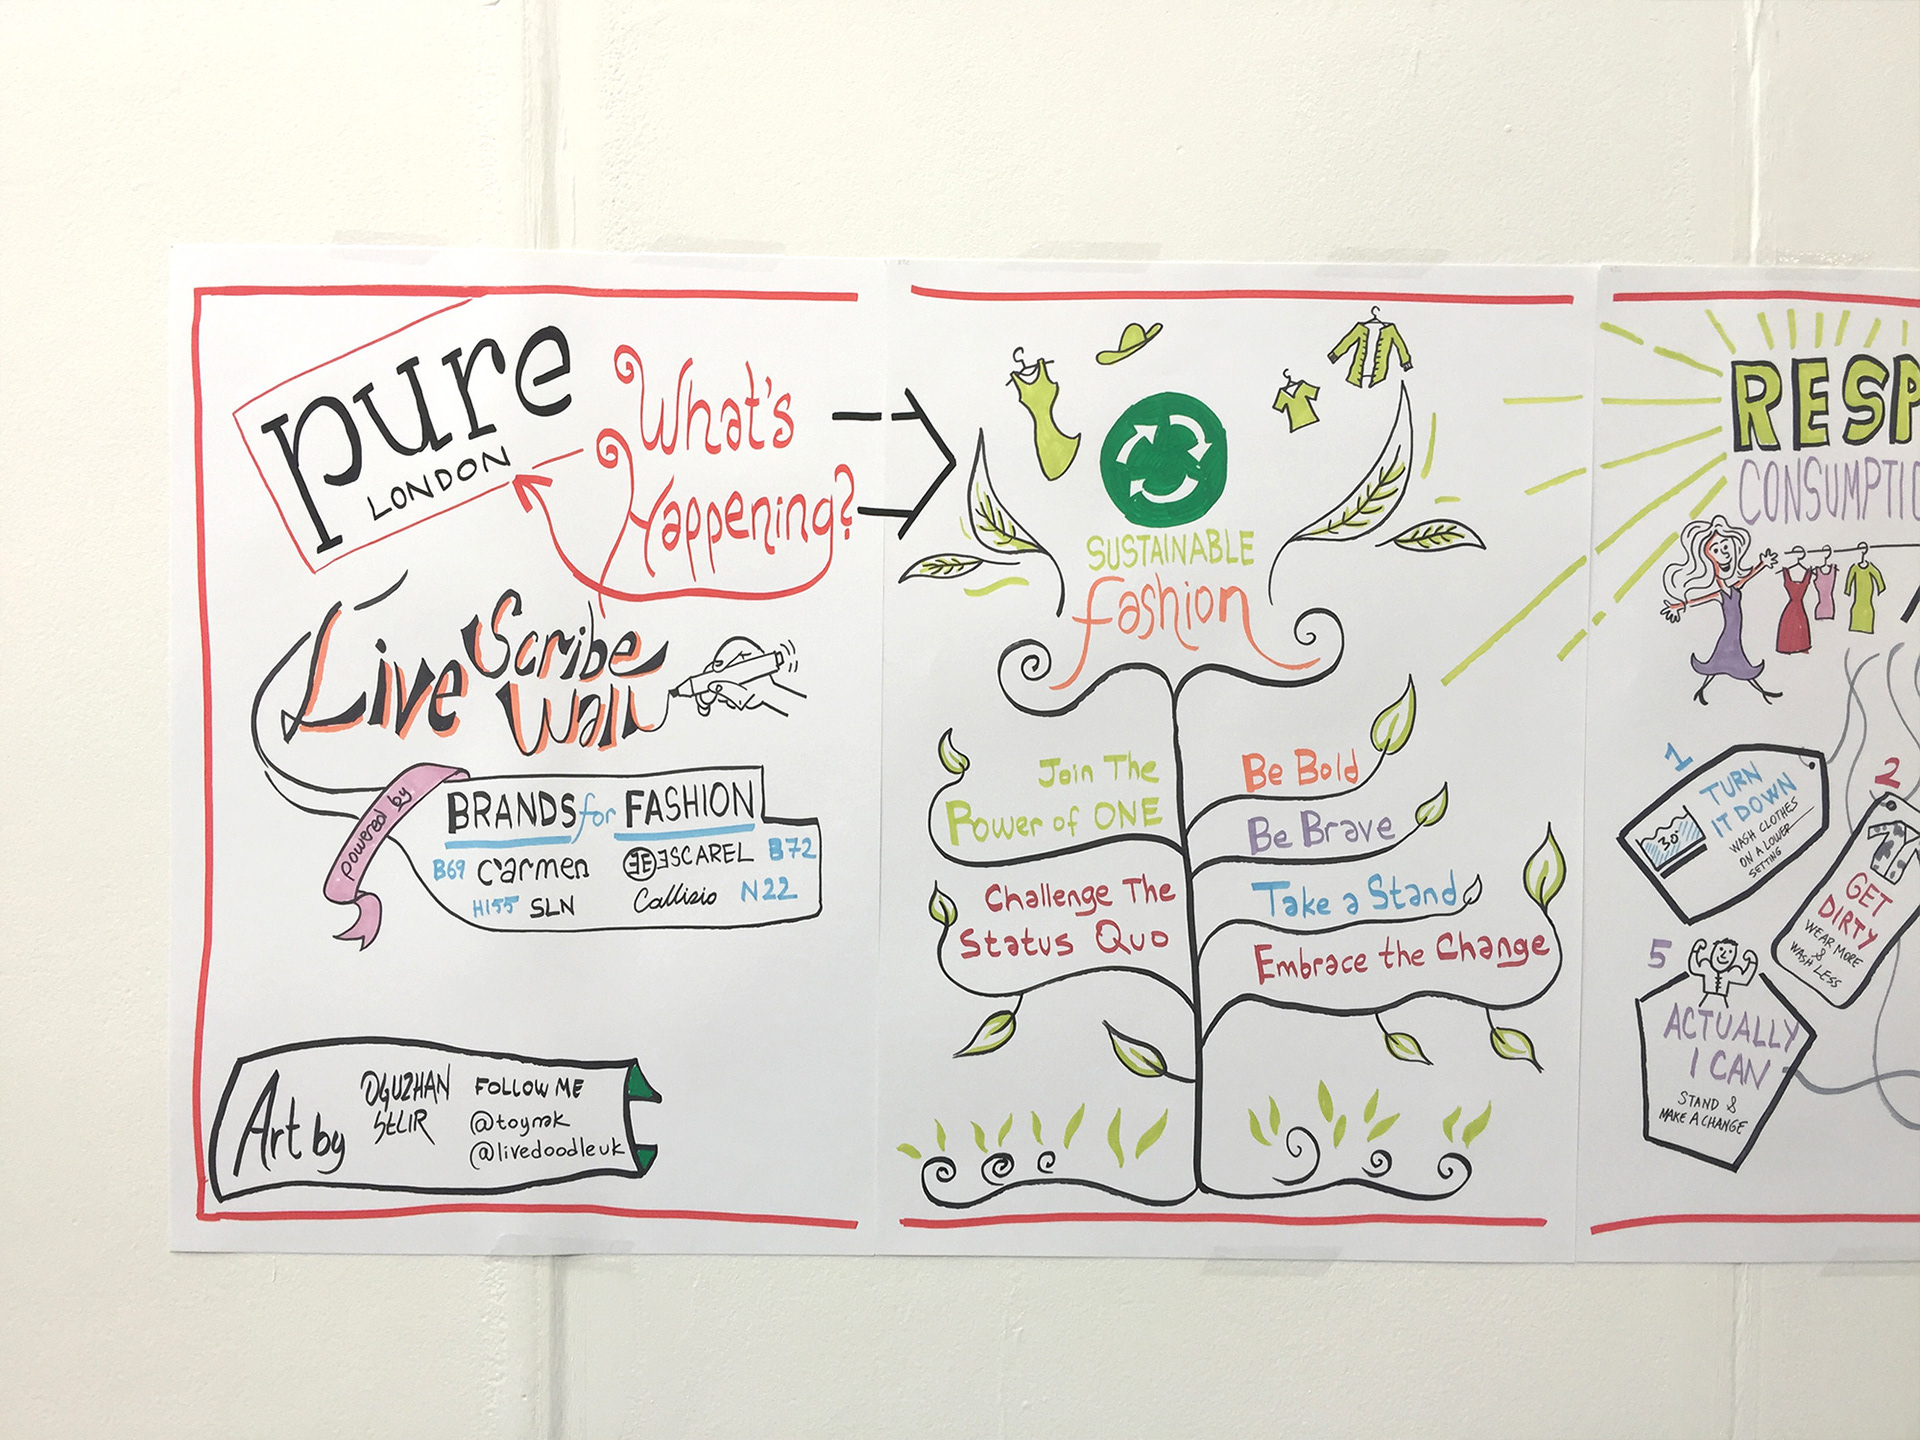 pure
LONDON
What's
Happening?
Live Scribe
Wall
powered by
BRANDS for FASHION
B69 Carmen
ESCAREL B72
H155 SLN
Callisio N22
Art by
OGUZHAN
FOLLOW ME
@toynak
@livedoodleuk
SUSTAINABLE
fashion
Join The
Power of ONE
Challenge The
Status Quo
Be Bold
Be Brave
Take a Stand
Embrace the Change
RESP
CONSUMPTIO
1
TURN
IT DOWN
30°
WASH CLOTHES
ON A LOWER
SETTING
2
GET
DIRTY
WEAR MORE
&
WASH LESS
5
ACTUALLY
I CAN
STAND &
MAKE A CHANGE